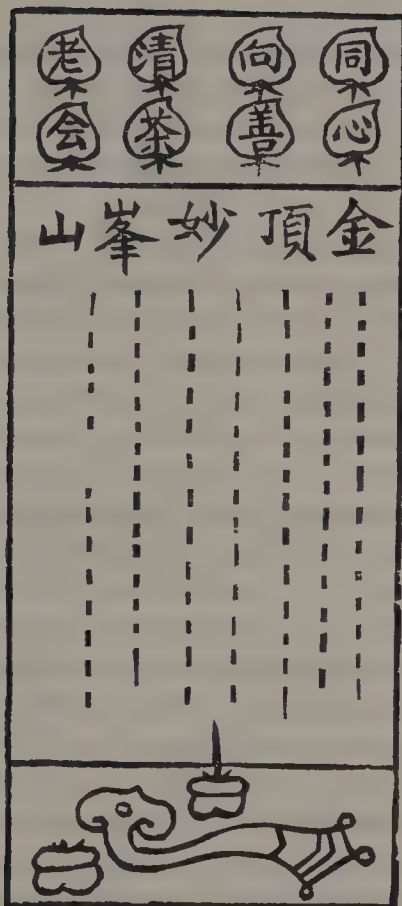 同心
向善
清茶
老会
金頂妙峯山